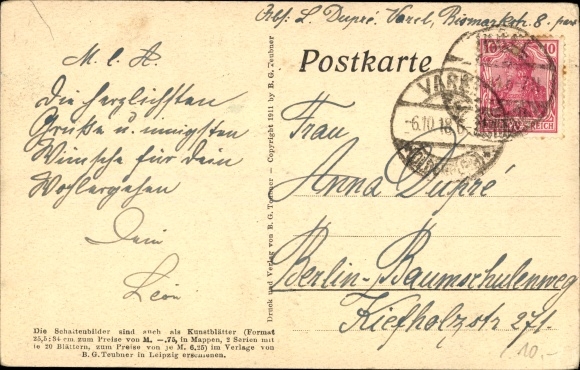 Abs: L. Dupré. Varel, Bismarkstr. 8.
Postkarte
M. l. A.
Die herzlichsten
Grüße u. innigsten
Wünsche für dein
Wohlergehen
Dein
Léon
Die Schattenbilder sind auch als Kunstblätter (Format
25,5:34 cm zum Preise von M. —,75, in Mappen, 2 Serien mit
je 20 Blättern, zum Preise von je M. 6,25) im Verlage von
B. G. Teubner in Leipzig erschienen.
Druck und Verlag von B. G. Teubner - Copyright 1911 by B. G. Teubner
10 10
REICH
VAREL
-6.10.18.
Frau
Anna Dupré
Berlin-Baumschulenweg
Kiefholzstr 271.
10.-